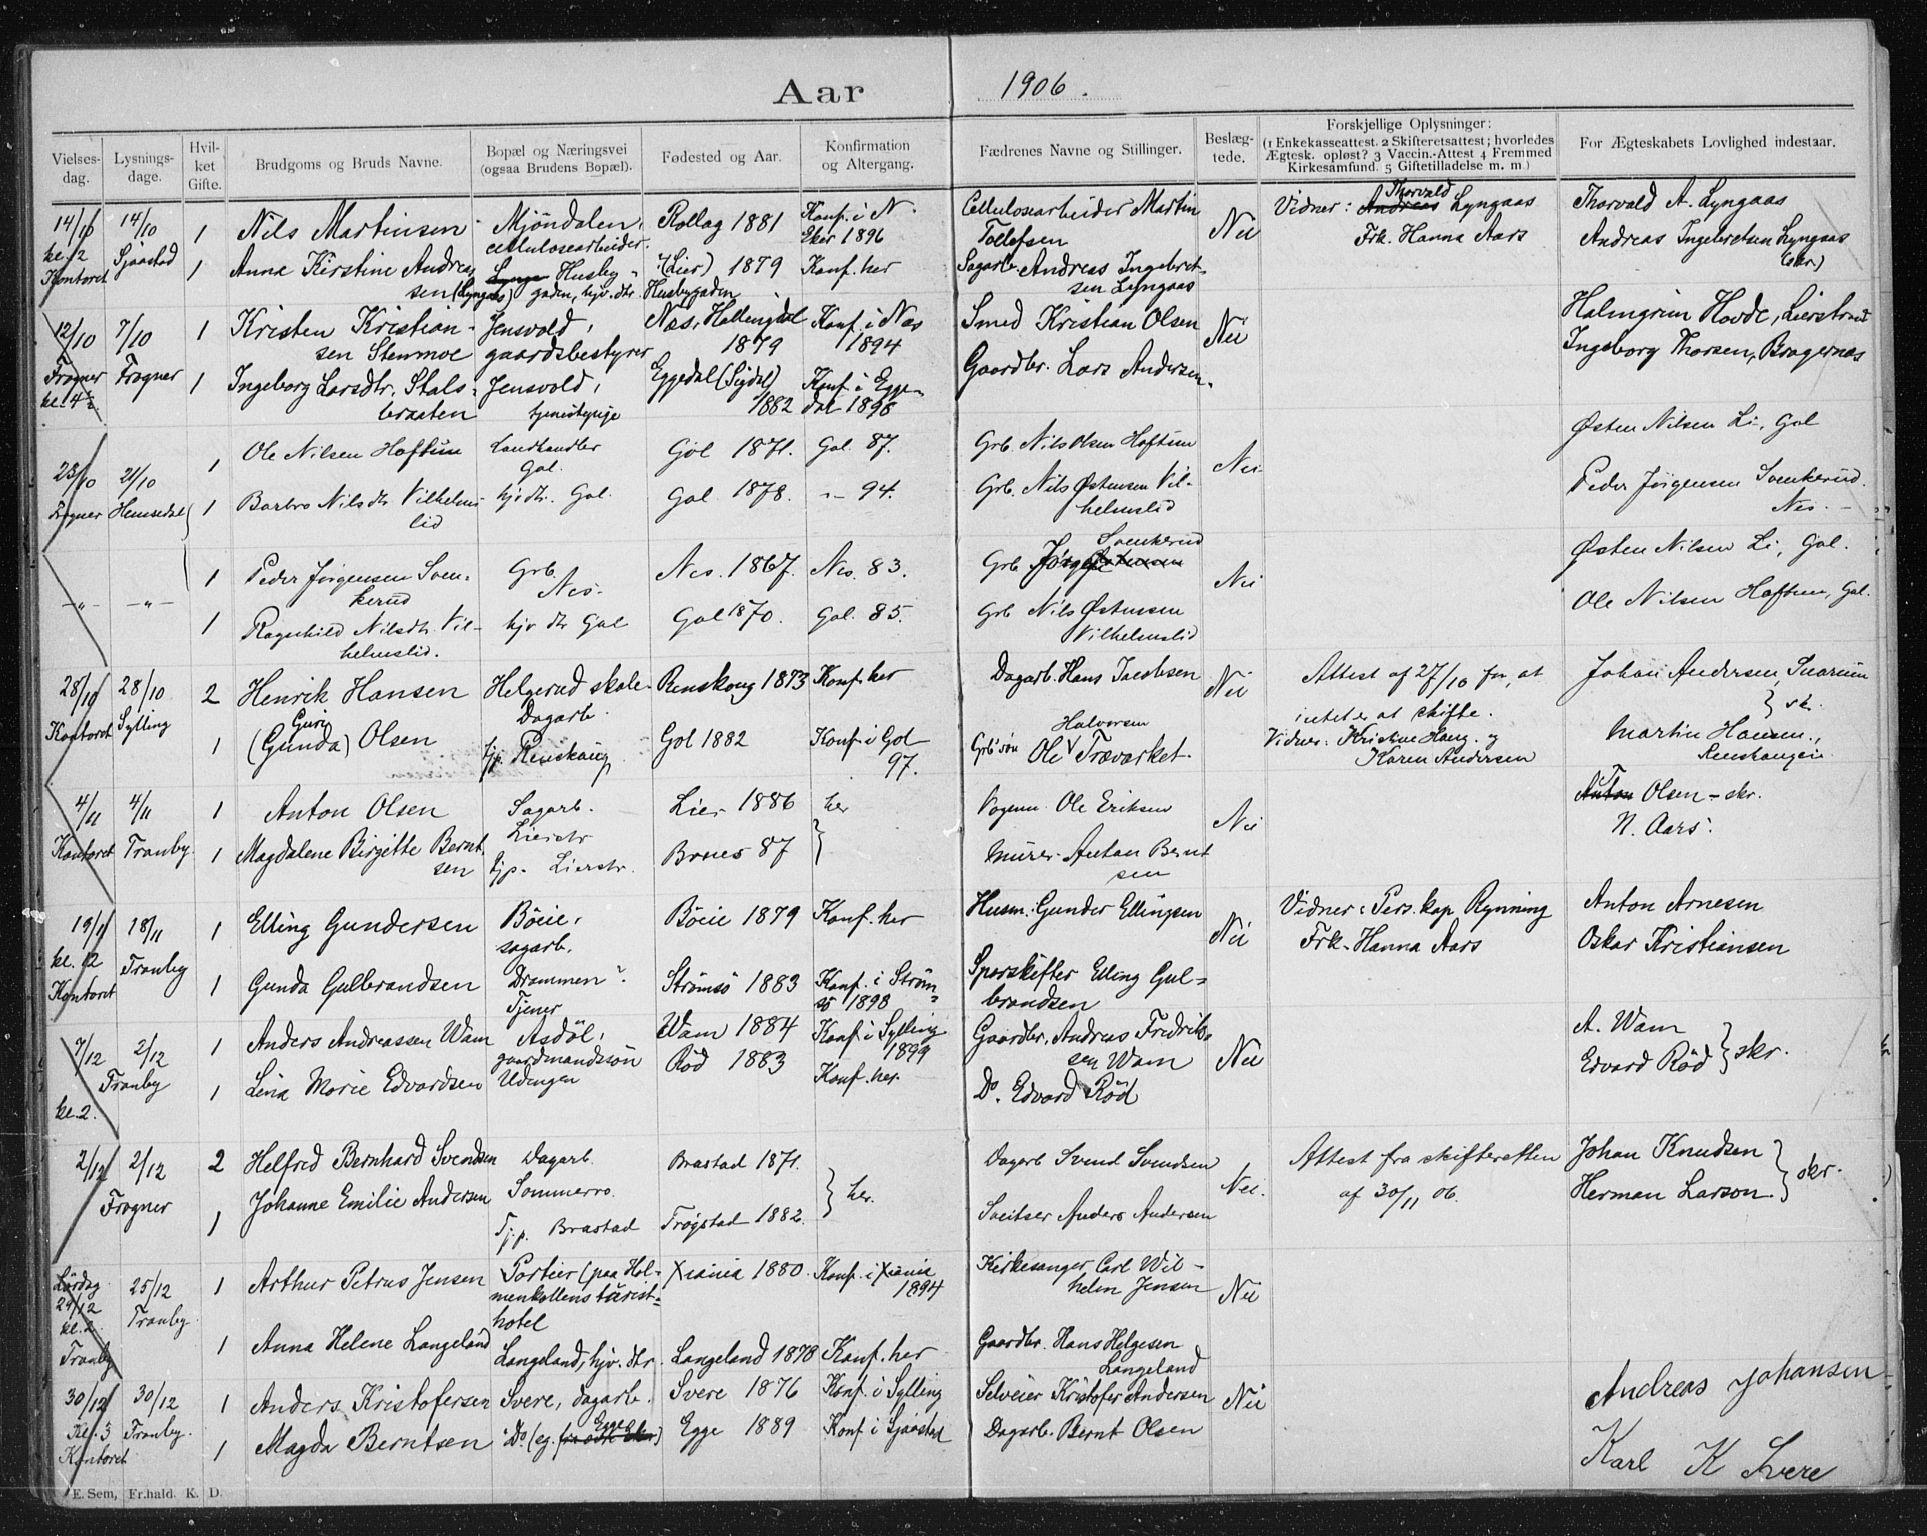 Aar 1906.
Vielses-dag. Lysnings-dage. Hvil-ket Gifte. Brudgoms og Bruds Navne. Bopæl og Næringsvei (ogsaa Brudens Bopæl). Fødested og Aar. Konfirmation og Altergang. Fædrenes Navne og Stillinger. Beslæg-tede. Forskjellige Oplysninger: (1 Enkekasseattest. 2 Skifteretsattest; hvorledes Ægtesk. opløst? 3 Vaccin.-Attest 4 Fremmed Kirkesamfund. 5 Giftetilladelse m. m.) For Ægteskabets Lovlighed indestaar.
14/10 kl. 2 Kontoret 14/10 Sjaastad
1 Nils Martinsen Mjöndalen, cellulosearbeider. Rollag 1881 Konf. i N. Eker 1896 Cellulosearbeider Martin Tollefsen Nei Vidner: Andreas Thorvald Lyngaas Thorvald A. Lyngaas
1 Anna Kirstine Andreassen (Lyngaas) Husbygaden, hjv. dtr. (Lier) 1879 Husbygaden Konf. her Sagarb. Andreas Ingebretsen Lyngaas Frk. Hanna Aars Andreas Ingebretsen Lyngaas (skr.)
12/10 Frogner kl. 4½ 7/10 Frogner
1 Kristen Kristiansen Stenmoe Jensvold, gaardsbestyrer Næs, Hallingdal 1879 Konf. i Næs 1894 Smed Kristian Olsen Nei Halmgrim Hovde, Lierstrand
1 Ingeborg Larsdtr. Stalsbraaten Jensvold, tjenestepige Eggedal (Sigdal) 1882 Konf. i Eggedal 1898 Gaardbr. Lars Andersen Ingeborg Thorsen, Bragernæs
23/10 Frogner 21/10 Hemsedal
1 Ole Nilsen Hoftun Landhandler Gol. Gol 1871. Gol. 87. Grb. Nils Olsen Hoftun Nei Østen Nilsen Li, Gol
1 Barbro Nilsdtr. Vilhelmslid hjv dtr. Gol. Gol 1878. -"- 94. Grb. Nils Østensen Vilhelmslid Peder Jörgensen Svenkerud. Nes.
-"- -"-
1 Peder Jörgensen Svenkerud Grb. Nes. Nes. 1867. Nes. 83. Grb Jörg Østensen Svenkerud Nei Østen Nilsen Li, Gol.
1 Ragnhild Nilsdtr. Vilhelmslid. hjv dtr Gol Gol 1870. Gol. 85. Grb Nils Østensen Vilhelmslid Ole Nilsen Hoftun, Gol.
28/10 Kontoret 28/10 Sylling
2 Henrik Hansen Helgerud skole Dagarb. Renskoug 1873 Konf. her Dagarb. Hans Jacobsen Nei Attest af 27/10 for, at intet er at skifte. Johan Andersen, Snarum
1 Guri (Gunda) Olsen tjp. Renskaug Gol 1882 Konf. i Gol 97. Grb's søn Ole Halvorsen Trævarket. Vidner: Kristine Haug og Karen Andersen Martin Hansen, Renskaugeie } sk.
4/11 Kontoret 4/11 Tranby.
1 Anton Olsen Sagarb. Lierstr Lier 1886 her Vognm. Ole Eriksen Nei Anton T Olsen - skr.
1 Magdalene Birgitte Berntsen tjp. Lierstr. Brnes 87 } Murer Anton Berntsen N. Aars.
19/11 kl. 12 Kontoret 18/11 Tranby
1 Elling Gundersen Böeie, sagarb. Böeie 1879 Konf. her Husm. Gunder Ellingsen Nei Vidner: Pers. kap Rynning Anton Arnesen
1 Gunda Gulbrandsen Drammen Tjener Strømsö 1883 Konf. i Strømsö 1898 Sporskifter Elling Gulbrandsen Frk. Hanna Aars Oskar Kristiansen
7/12 kl. 2. 2/12 Tranby
1 Anders Andreassen Wam Asdöl, gaardmandssön Wam 1884 Konf. i Sylling 1899 Gaardbr. Andreas Fredriksen Wam Nei A. Wam
1 Lina Marie Edvardsen Udengen Röd 1883 Konf. her. Do. Edvard Röd Edvard Röd } skr.
2/12 2/12 Frogner
2 Helfred Bernhard Svendsen Dagarb. Sommerro. Brastad 1871. Dagarb Svend Svendsen Nei. Attest fra skifteretten af 30/11 06. Johan Knudsen
1 Johanne Emilie Andersen Tj.p. Brastad Trøgstad 1882. } her. Sveitser Anders Andersen Herman Larson. } skr.
Lördag 29/12 kl. 2 Tranby 25/12 Tranby.
1 Arthur Petrus Jensen Portier (paa Holmenkollens turisthotel Xiania 1880. Konf. i Xiania 1894 Kirkesanger Carl Wilhelm Jensen Nei
1 Anna Helene Langeland Langeland, hjv. dtr. Langeland 1878 Konf. her Gaardbr. Hans Helgesen Langeland
30/12 Kl. 3 Kontoret 30/12 Tranby.
1 Anders Kristofersen Svere, dagarb. Svere 1876 Konf. i Sylling Selveier Kristofer Andersen Nei Andreas Johansen
1 Magda Berntsen Do (eg. Egge) Egge 1889 Konf. i Sjaastad Dagarb. Bernt Olsen Karl K Svere
E. Sem, Fr.hald. K. D.